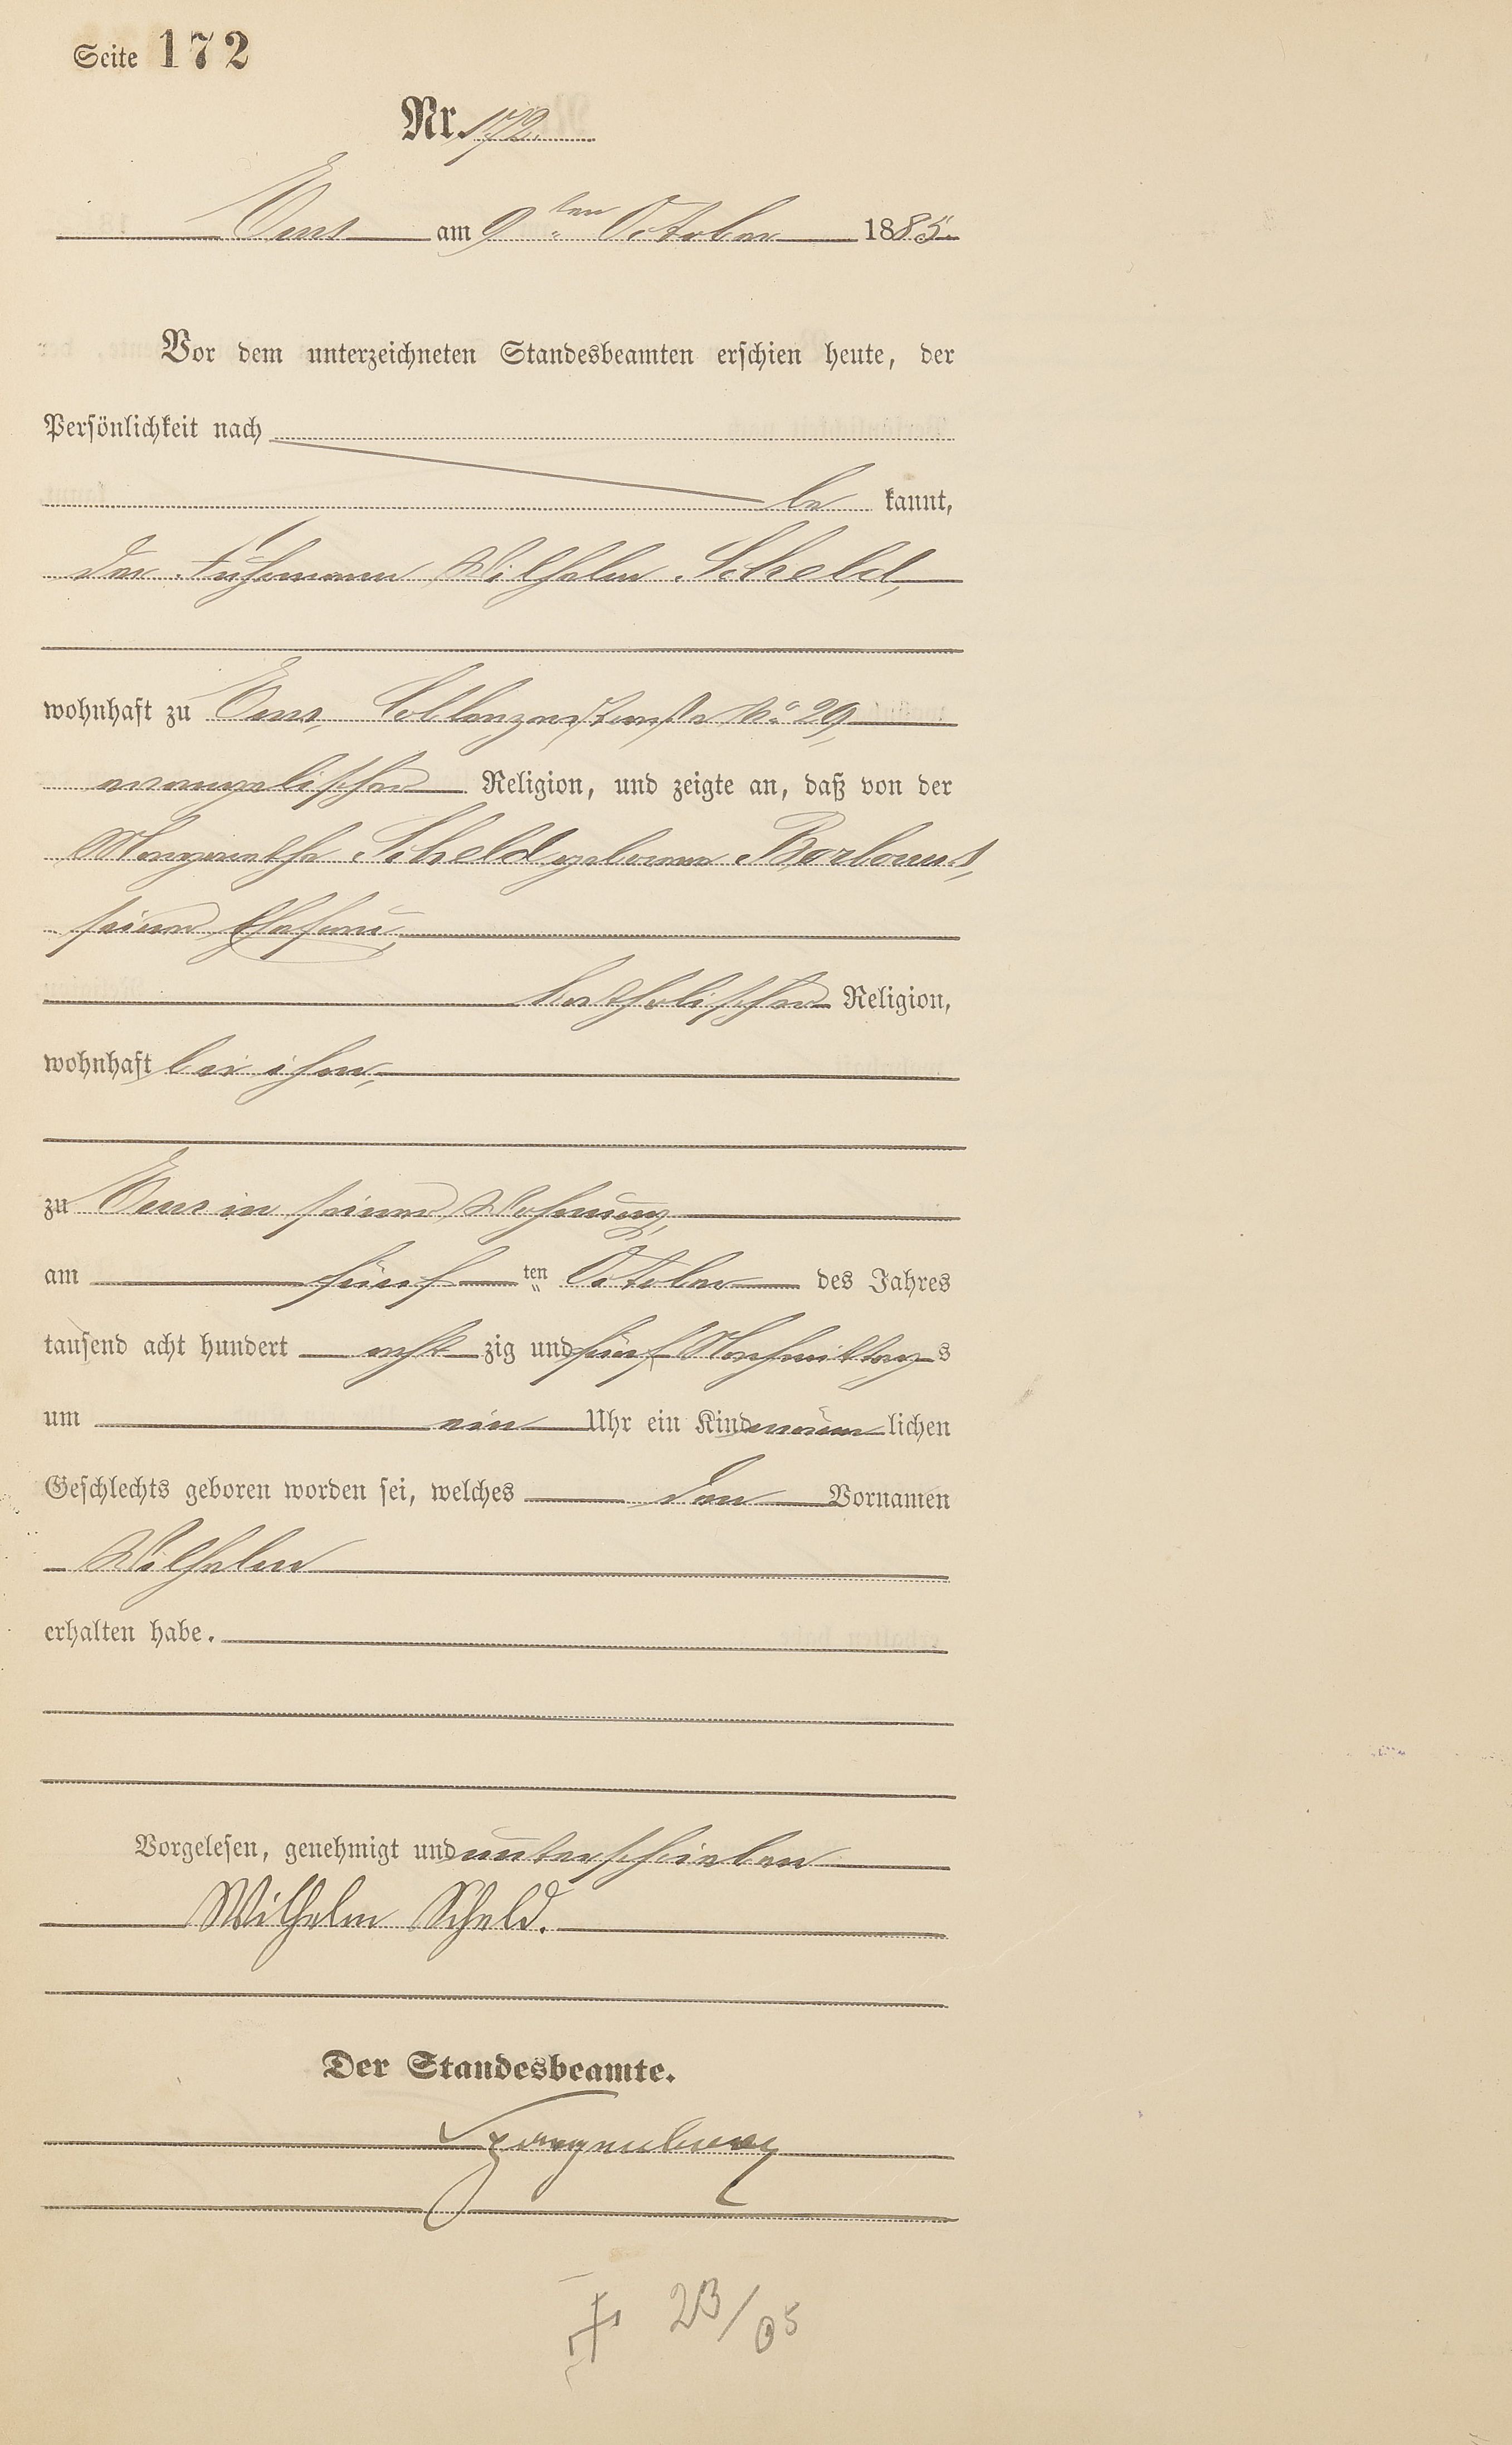 Seite 172
Nr. 172.
Ems am 9ten October 1885.
Vor dem unterzeichneten Standesbeamten erschien heute, der
Persönlichkeit nach
be kannt,
der Fuhrmann Wilhelm Scheld,
wohnhaft zu Ems, Coblenzerstraße No 29,
evangelischer Religion, und zeigte an, daß von der
Margarethe Scheld geborene Barbonus,
seiner Ehefrau,
katholischer Religion,
wohnhaft bei ihm,
zu Ems in seiner Wohnung,
am fünf ten October des Jahres
tausend acht hundert acht zig und fünf Nachmittag s
um ein Uhr ein Kind männ lichen
Geschlechts geboren worden sei, welches den Vornamen
Wilhelm
erhalten habe.
Vorgelesen, genehmigt und unterschrieben
Wilhelm Scheld.
Der Standesbeamte.
23/05